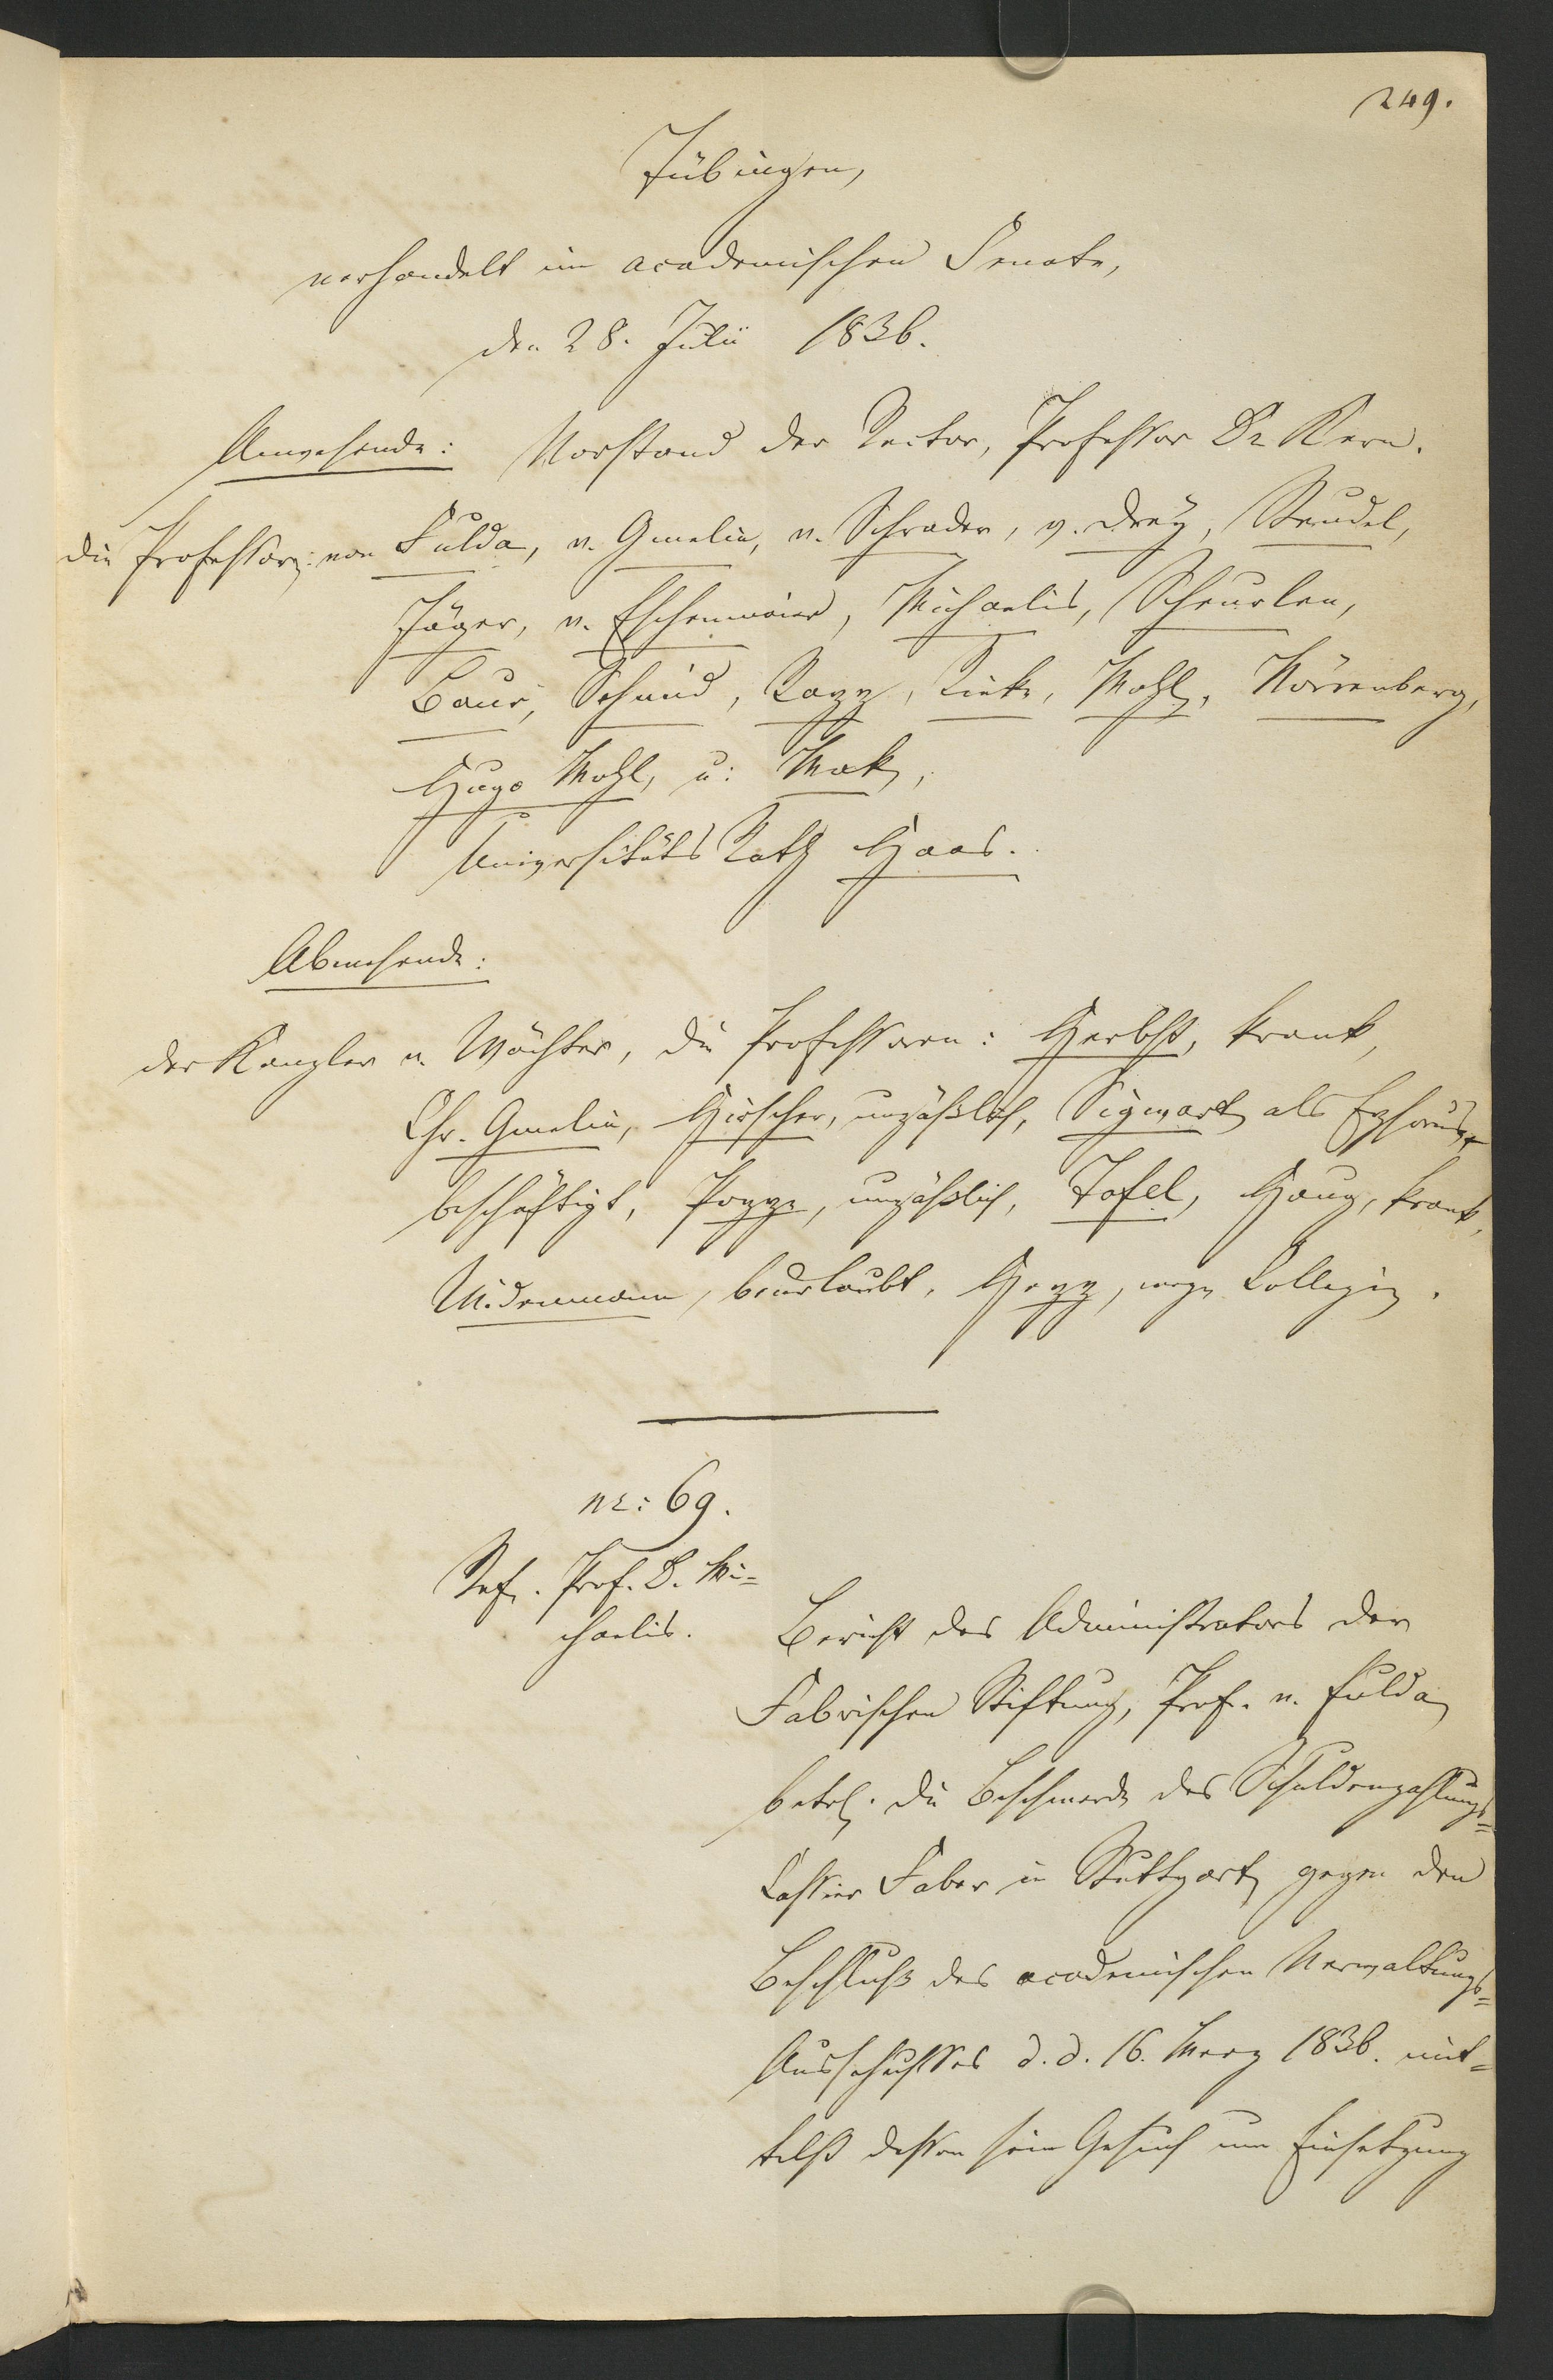 249.
Tübingen,
verhandelt im academischen Senate,
den 28. Julii 1836.
Anwesende: Vorstand der Rector, Professor Dr Kern.
die Professoren: von Fulda, v. Gmelin, v. Schrader, v. Drey, Steudel,
Jäger, v. Eschenmaier, Michaelis, Scheurlen,
Baur, Schmid, Rapp, Rieke, Mohl, Nörrenberg,
Hugo Mohl, u: Mak,
Universitäts Rath Haas.
Abwesende:
der Kanzler v. Wächter, die Professoren: Herbst, krank,
Chr. Gmelin, Hirscher, unpäßlich, Sigwart als Ephorus
beschäftigt, Poppe, unpäßlich, Tafel, Haug, krank,
Widenmann, beurlaubt, Hepp, wegen Collegien.
nr: 69.
Ref. Prof. D. Mi=
chaelis.
Bericht des Administrators der
Fabrischen Stiftung, Prof. v. Fulda
betr. die Beschwerde des Schuldenzahlungs=
Cassier Faber in Stuttgart gegen den
Beschluß des academischen Verwaltungs=
Ausschusses d. d. 16. Merz 1836. mit=
telst dessen sein Gesuch um Einsetzung